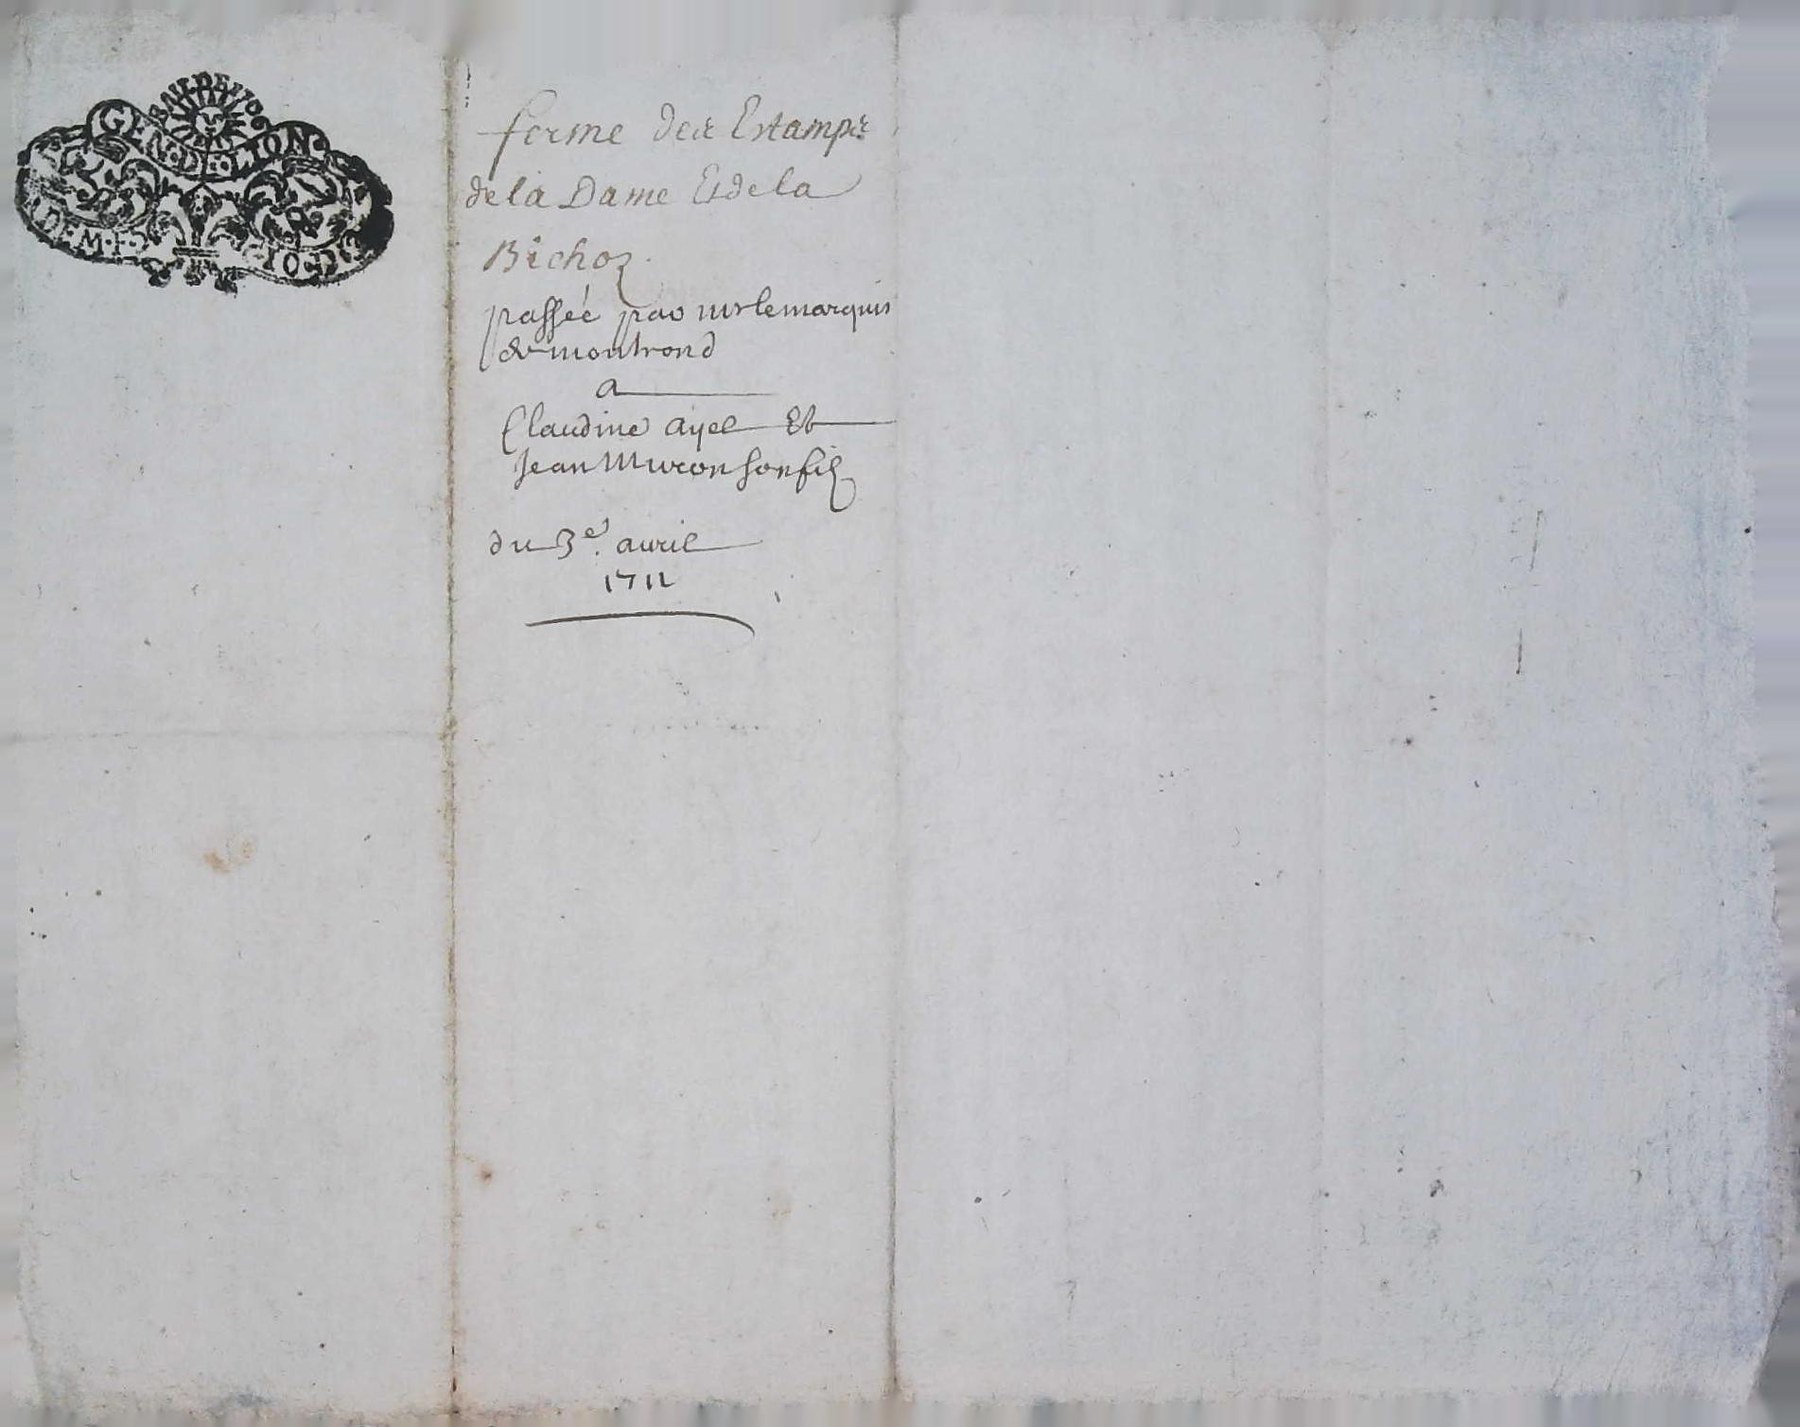 GEN. D. LION.
DEMI
ferme des Estampes
de la Dame Et de la
Bichoz
passée par mr le marquis
de montrond
a
Claudine ayel Et
Jean Muron son fils
du 3e. avril
1712